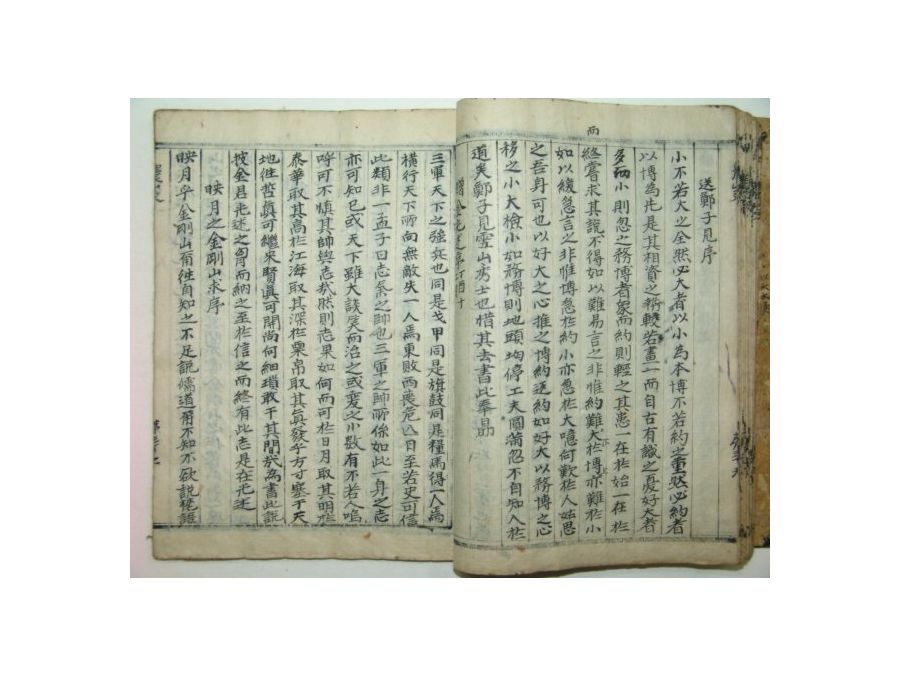 送鄭子見序
小不若大之全然必大者以小為本博不若約之實然必約者
以博為先是其相資之辨較若畫一而自古有識之憂好大者
多而小則忽之務博者象而約則輕之其患一在於始一在於
終嘗求其說不得如以難易言之非惟約難大於博亦難於小
如以緩急言之非惟博急於約小亦急於大噫何歎於人姑思
之吾身可也以好大之心推之博約遜約如好大以務博之心
移之小大檢小如務博則地頭均停工夫圓滿忽不自知入於
道矣鄭子見靈山秀士也惜其去書此奉勗
三軍天下之強兵也同是戈甲同是旗鼓同是糧馬得一人焉
橫行天下所向無敵失一人焉東敗西喪危亡日至若史可信
此類非一孟子曰志氣之帥也三軍之帥所係如此一身之志
亦可知已或天下雖大談笑而治之或變之小數有不若人嗚
呼可不慎其帥與志哉然則志果如何而可於日月取其明於
泰華取其高於江海取其深於粟帛取其眞發乎方寸塞于天
地往哲眞可繼來賢眞可開尚何細瑣敢干其間哉為書此說
披金君先述之胷而納之至於信之而終有此志是在先述
映月之金剛山求序
映月乎金剛山爾往自知之不足說儒道爾不知不欲說